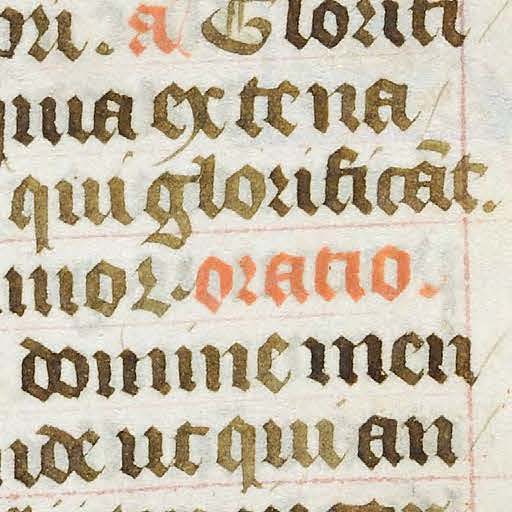 ori . a Glorifi
quia ex terra
qui glorificāt.
mor. oratio.
domine men
nde ut qui an